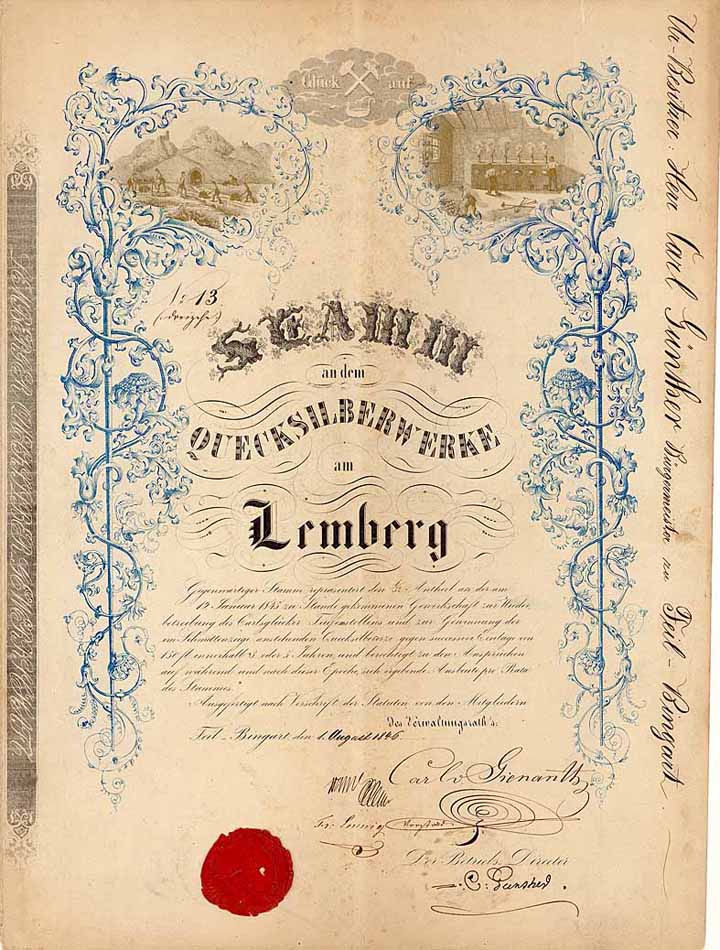 Glück auf
No. 13.
(dreizehn)
STAMM
an dem
QUECKSILBERWERKE
am
Lemberg
Gegenwärtiger Stamm repräsentirt den Antheil an der am
12 Januar 1845 zu Stande gekommenen Gewerkschaft zur Wieder
betreibung des Carlsglücker Tiefenstollens und zur Gewinnung der
im anstehenden Quecksilbererze gegen successive Einlage von
150 fl innerhalb 3 oder 5 Jahren, und berechtigt zu den Ansprüchen
auf während und nach dieser Epoche, sich ergebende Ausbeute pro Rata
des Stammes.
Ausgefertigt nach Vorschrift der Statuten von den Mitgliedern
des Verwaltungsrath's.
Feil-Bingart, den 1. August 1846
Carl v Gienanth
Fr.
Der Betriebs Director
C. Günther
Ur-Besitzer: Herr Carl Günther Bürgermeister zu Feil-Bingart.